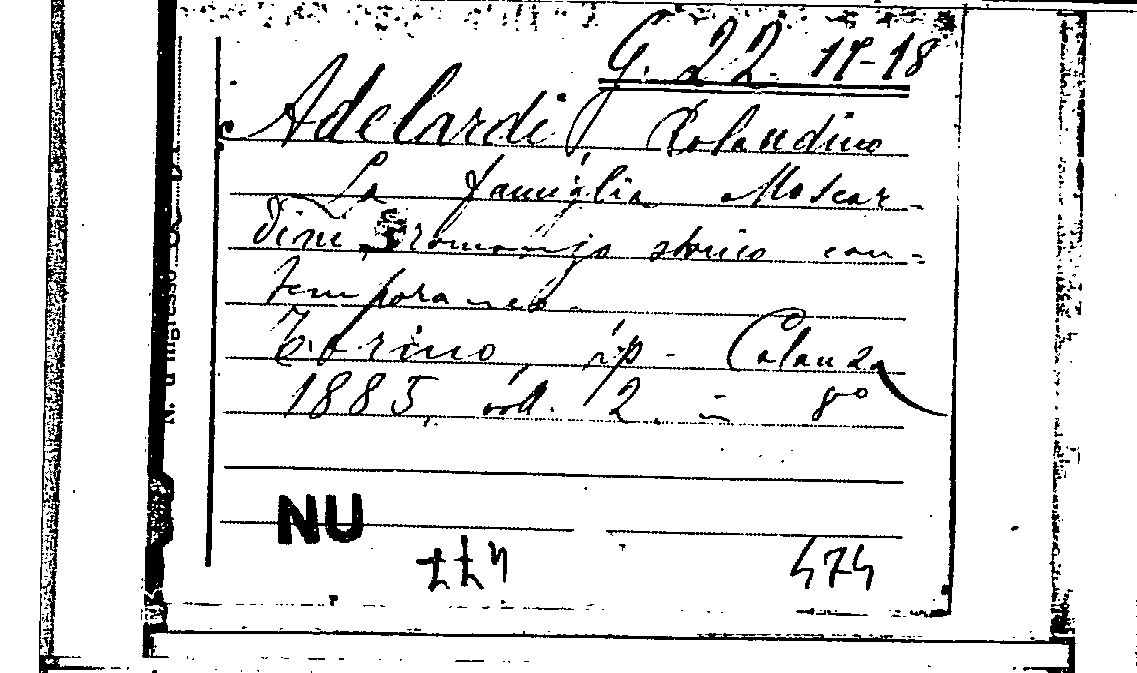 G. 22. 17-18
Adelardi Rolandino
La famiglia Moscar-
dini, romanzo storico con-
temporaneo.
Torino, tip. Calanza
1885, voll. 2. in 8°
N. d'ingresso
NU
474